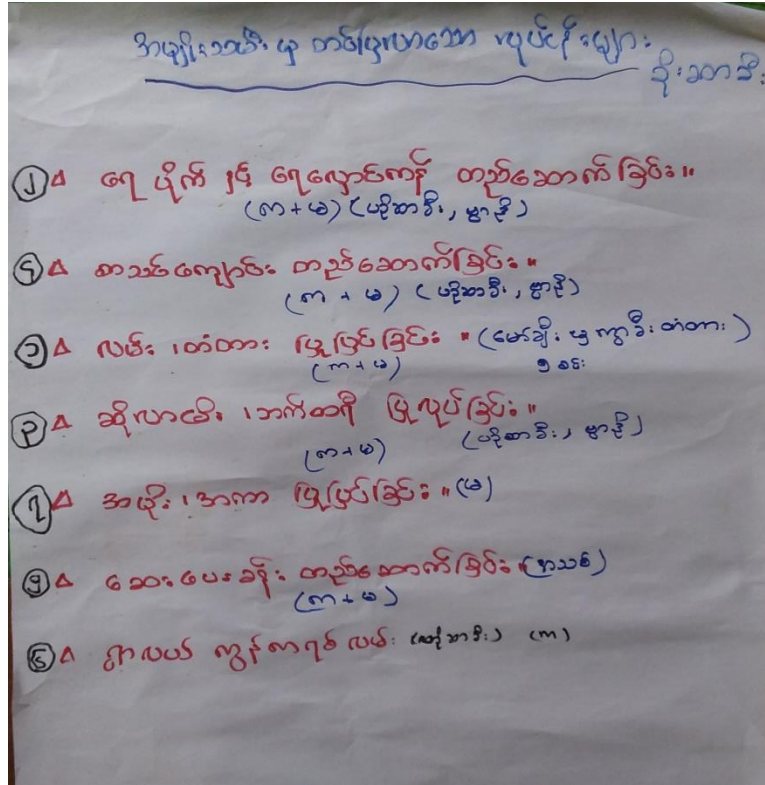 အမျိုးသမီး မှ တင်ပြလာသော လုပ်ငန်းများ
ခိုးဆာခီး
၂ ∆ ရေ ပိုက် နှင့် ရေလှောင်ကန် တည်ဆောက်ခြင်း။
(ကာ + မ) (ပဒိုဆာခီး, ရွာဦး)
∆ စာသင်ကျောင်း တည်ဆောက်ခြင်း။
(ကာ + မ) (ပဒိုဆာခီး, ရွာဦး)
၁ ∆ လမ်း ၊ တံတား ပြုပြင်ခြင်း ။ (မော်ချီး မှ ကွာခီး တံတား)
(ကာ + မ) ၅ စင်း
∆ ဆိုလာမီး ၊ ဘက်ထရီ ပြုလုပ်ခြင်း။
(ကာ+မ) (ပဒိုဆာခီး, ရွာဦး)
၇ ∆ အမိုး ၊ အကာ ပြုပြင်ခြင်း။ (မ)
∆ ဆေးပေးခန်း တည်ဆောက်ခြင်း (အသစ်)
(ကာ + မ)
∆ ရွာလယ် ကွန်ကရစ် လမ်း (ဆာခီး) (ကာ)